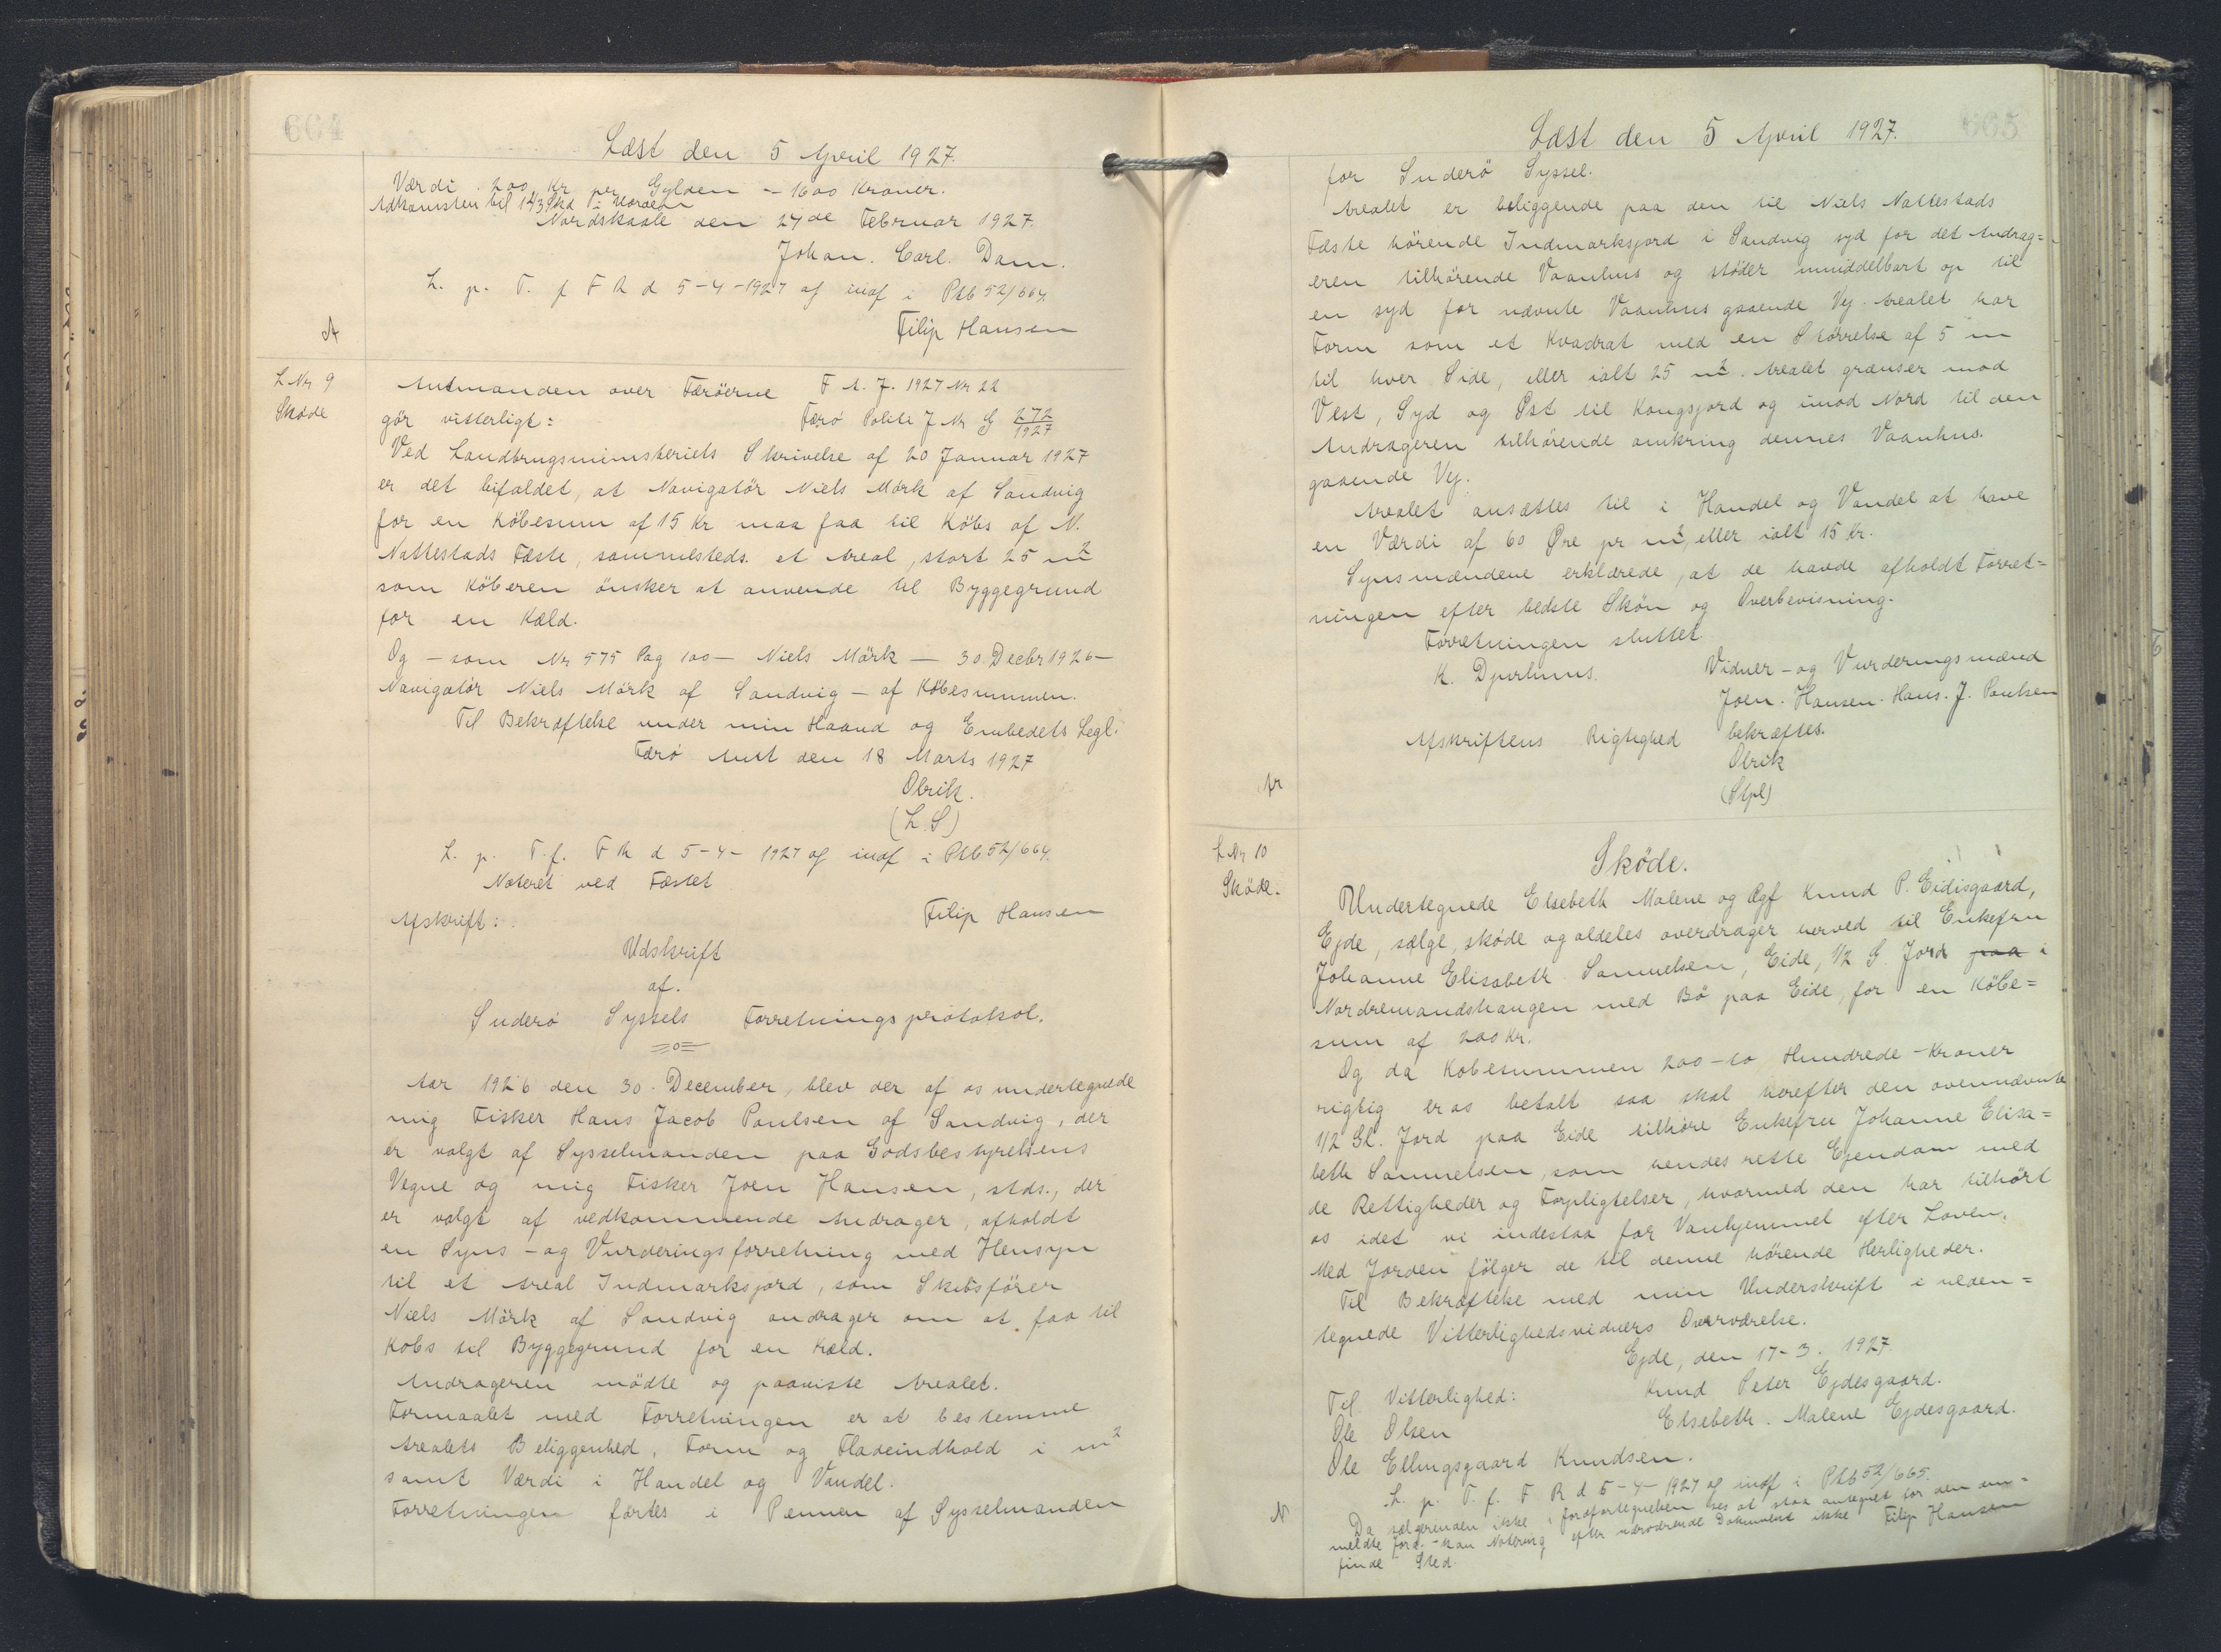 664
Læst den 5 April 1927.
Værdi. 200 Kr per Gylden - 1600 Kroner.
Adkomsten til 143 Skd i Norden
Nordskaale den 24de Februar 1927.
Johan. Carl. Dam.
L. p. T. f F R d 5-4-1927 og indf i Pkb 52/664.
Filip Hansen
A
L Nr 9
Skøde
Amtmanden over Færöerne F A. J. 1927 Nr 22
gör vitterligt: Færø Politi J Nr G 272/1927
Ved Landbrugsministeriets Skrivelse af 20 Januar 1927
er det bifaldet, at Navigatör Niels Mörk af Sandvig
for en Købesum af 15 Kr maa faa til Købs af N.
Nattestads Fæste, sammesteds. et Areal, stort 25 m2
som Köberen önsker at anvende til Byggegrund
for en Kæld.
Og - som Nr 575 Pag 100 - Niels Mörk - 30. Decbr 1926 -
Navigatör Niels Mörk af Sandvig - af Købesummen.
Til Bekræftelse under min Haand og Embedets Segl.
Færø Amt den 18 Marts 1927
Olrik.
(L. S)
L. p. T. f. F R d 5-4-1927 og indf i Pkb. 52/664.
Noteret ved Fæstet
Filip Hansen
Afskrift:
Udskrift
af.
Suderø Syssels Forretningsprotokol.
=o=
Aar 1926 den 30. December, blev der af os undertegnede
mig Fisker Hans Jacob Poulsen af Sandvig, der
er valgt af Sysselmanden paa Godsbestyrelsens
Vegne og mig Fisker Joen Hansen, stds., der
er valgt af vedkommende Andrager, afholdt
en Syns- og Vurderingsforretning med Hensyn
til et Areal Indmarksjord, som Skibsförer
Niels Mörk af Sandvig andrager om at faa til
Kobs til Byggegrund for en Kæld.
Andrageren mödte og paaviste Arealet.
Formaalet med Forretningen er at bestemme
Arealets Beliggenhed, Form og Fladeindhold i m2
samt Værdi i Handel og Vandel.
Forretningen førtes i Pennen af Sysselmanden
665
Læst den 5 April 1927.
for Suderø Syssel.
Arealet er beliggende paa den til Niels Nattestads
Fæste hörende Indmarksjord i Sandvig syd for det Andrag=
eren tilhörende Vaanhus og støder umiddelbart op til
en syd for nævnte Vaanhus gaaende Vej. Arealet har
Form som et Kvadrat med en Störrelse af 5 m
til hver Side, eller ialt 25 m2. Arealet grænser mod
Vest, Syd og Øst til Kongsjord og imod Nord til den
Andrageren tilhörende omkring dennes Vaanhus.
gaaende Vej.
Arealet ansættes til i Handel og Vandel at have
en Værdi af 60 Øre pr m2, eller ialt 15 Kr.
Synsmændene erklærede, at de havde afholdt Forret=
ningen efter bedste Skön og Overbevisning.
Forretningen sluttet
K. Djurhuus. Vidner- og Vurderingsmænd
Joen. Hansen. Hans. J. Poulsen
Afskriftens Rigtighed bekræftes.
Olrik
(Stpl)
fr
L Nr 10
Sköde.
Sköde.
Undertegnede Elsebeth Malene og Ægf Knud P. Eidisgaard,
Ejde, sælge, skøde og aldeles overdrager herved til Enkefru
Johanne Elisabeth Samuelsen, Eide, 1/2 G. Jord paa i
Nordremandshaugen med Bø paa Eide, for en Köbe=
sum af 200 Kr.
Og da Kobesummen 200 - to Hundrede - Kroner
rigtig er os betalt saa skal herefter den ovennævnte
1/2 Gl. Jord paa Eide tilhøre Enkefru Johanne Elisa=
beth Samuelsen, som hendes rette Ejendom med
de Rettigheder og Forpligtelser, hvormed den har tilhørt
os idet vi indestaa for Vanhjemmel efter Loven.
Med Jorden fölger de til denne hörende Herligheder.
Til Bekræftelse med min Underskrift i neden=
tegnede Vitterlighedsvidners Overværelse.
Ejde, den 17-3. 1927.
Til Vitterlighed: Knud Peter Ejdesgaard.
Ole Olsen Elsebeth. Malene Ejdesgaard.
Ole Ellingsgaard Knudsen.
L. p. T. f. F R d 5-4-1927 og indf i Pkb 52/665.
Da sælgerinden ikke i Jordfortegnelsen ses at staa antegnet for den om=
meldte Jord - kan Notering efter nærværende Dokument ikke
finde Sted. Filip Hansen
N